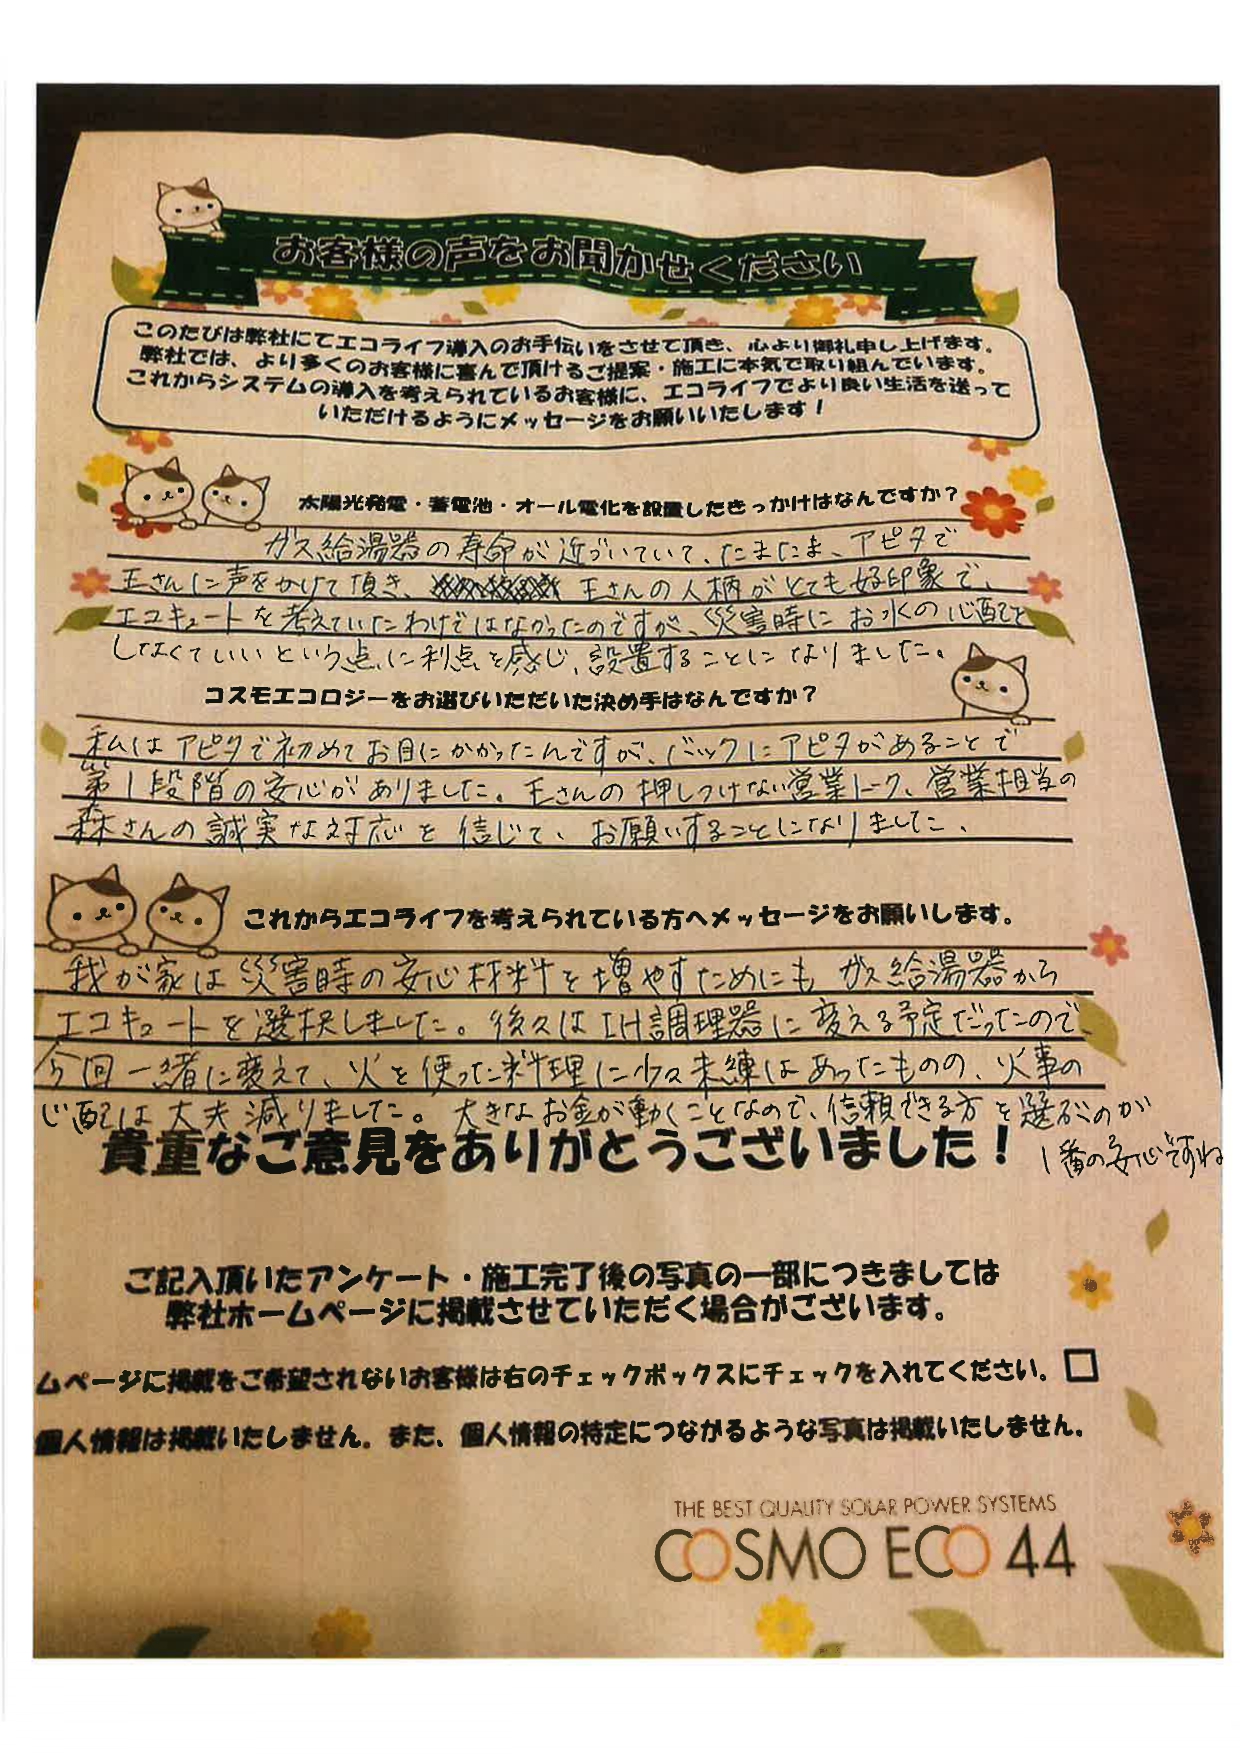 お客様の声をお聞かせください
このたびは弊社にてエコライフ導入のお手伝いをさせて頂き、心より御礼申し上げます。
弊社では、より多くのお客様に喜んで頂けるご提案・施工に本気で取り組んでいます。
これからシステムの導入を考えられているお客様に、エコライフでより良い生活を送って
いただけるようにメッセージをお願いいたします！
太陽光発電・蓄電池・オール電化を設置したきっかけはなんですか？
ガス給湯器の寿命が近づいていて、たまたま、アピタで
王さんに声をかけて頂き、王さんの人柄がとても好印象で、
エコキュートを考えていたわけではなかったのですが、災害時にお水の心配を
しなくていいという点に利点を感じ、設置することになりました。
コスモエコロジーをお選びいただいた決め手はなんですか？
私はアピタで初めてお目にかかったんですが、バックにアピタがあることで
第1段階の安心がありました。王さんの押しつけない営業トーク、営業担当の
森さんの誠実な対応を信じて、お願いすることになりました。
これからエコライフを考えられている方へメッセージをお願いします。
我が家は災害時の安心材料を増やすためにもガス給湯器から
エコキュートを選択しました。後々はIH調理器に変える予定だったので
今回一緒に変えて、火を使った料理に少々未練はあったものの、火事の
心配は大夫減りました。大きなお金が動くことなので、信頼できる方を選ぶのが
1番の安心ですね
貴重なご意見をありがとうございました！
ご記入頂いたアンケート・施工完了後の写真の一部につきましては
弊社ホームページに掲載させていただく場合がございます。
ムページに掲載をご希望されないお客様は右のチェックボックスにチェックを入れてください。□
個人情報は掲載いたしません。また、個人情報の特定につながるような写真は掲載いたしません。
THE BEST QUALITY SOLAR POWER SYSTEMS
COSMO ECO 44